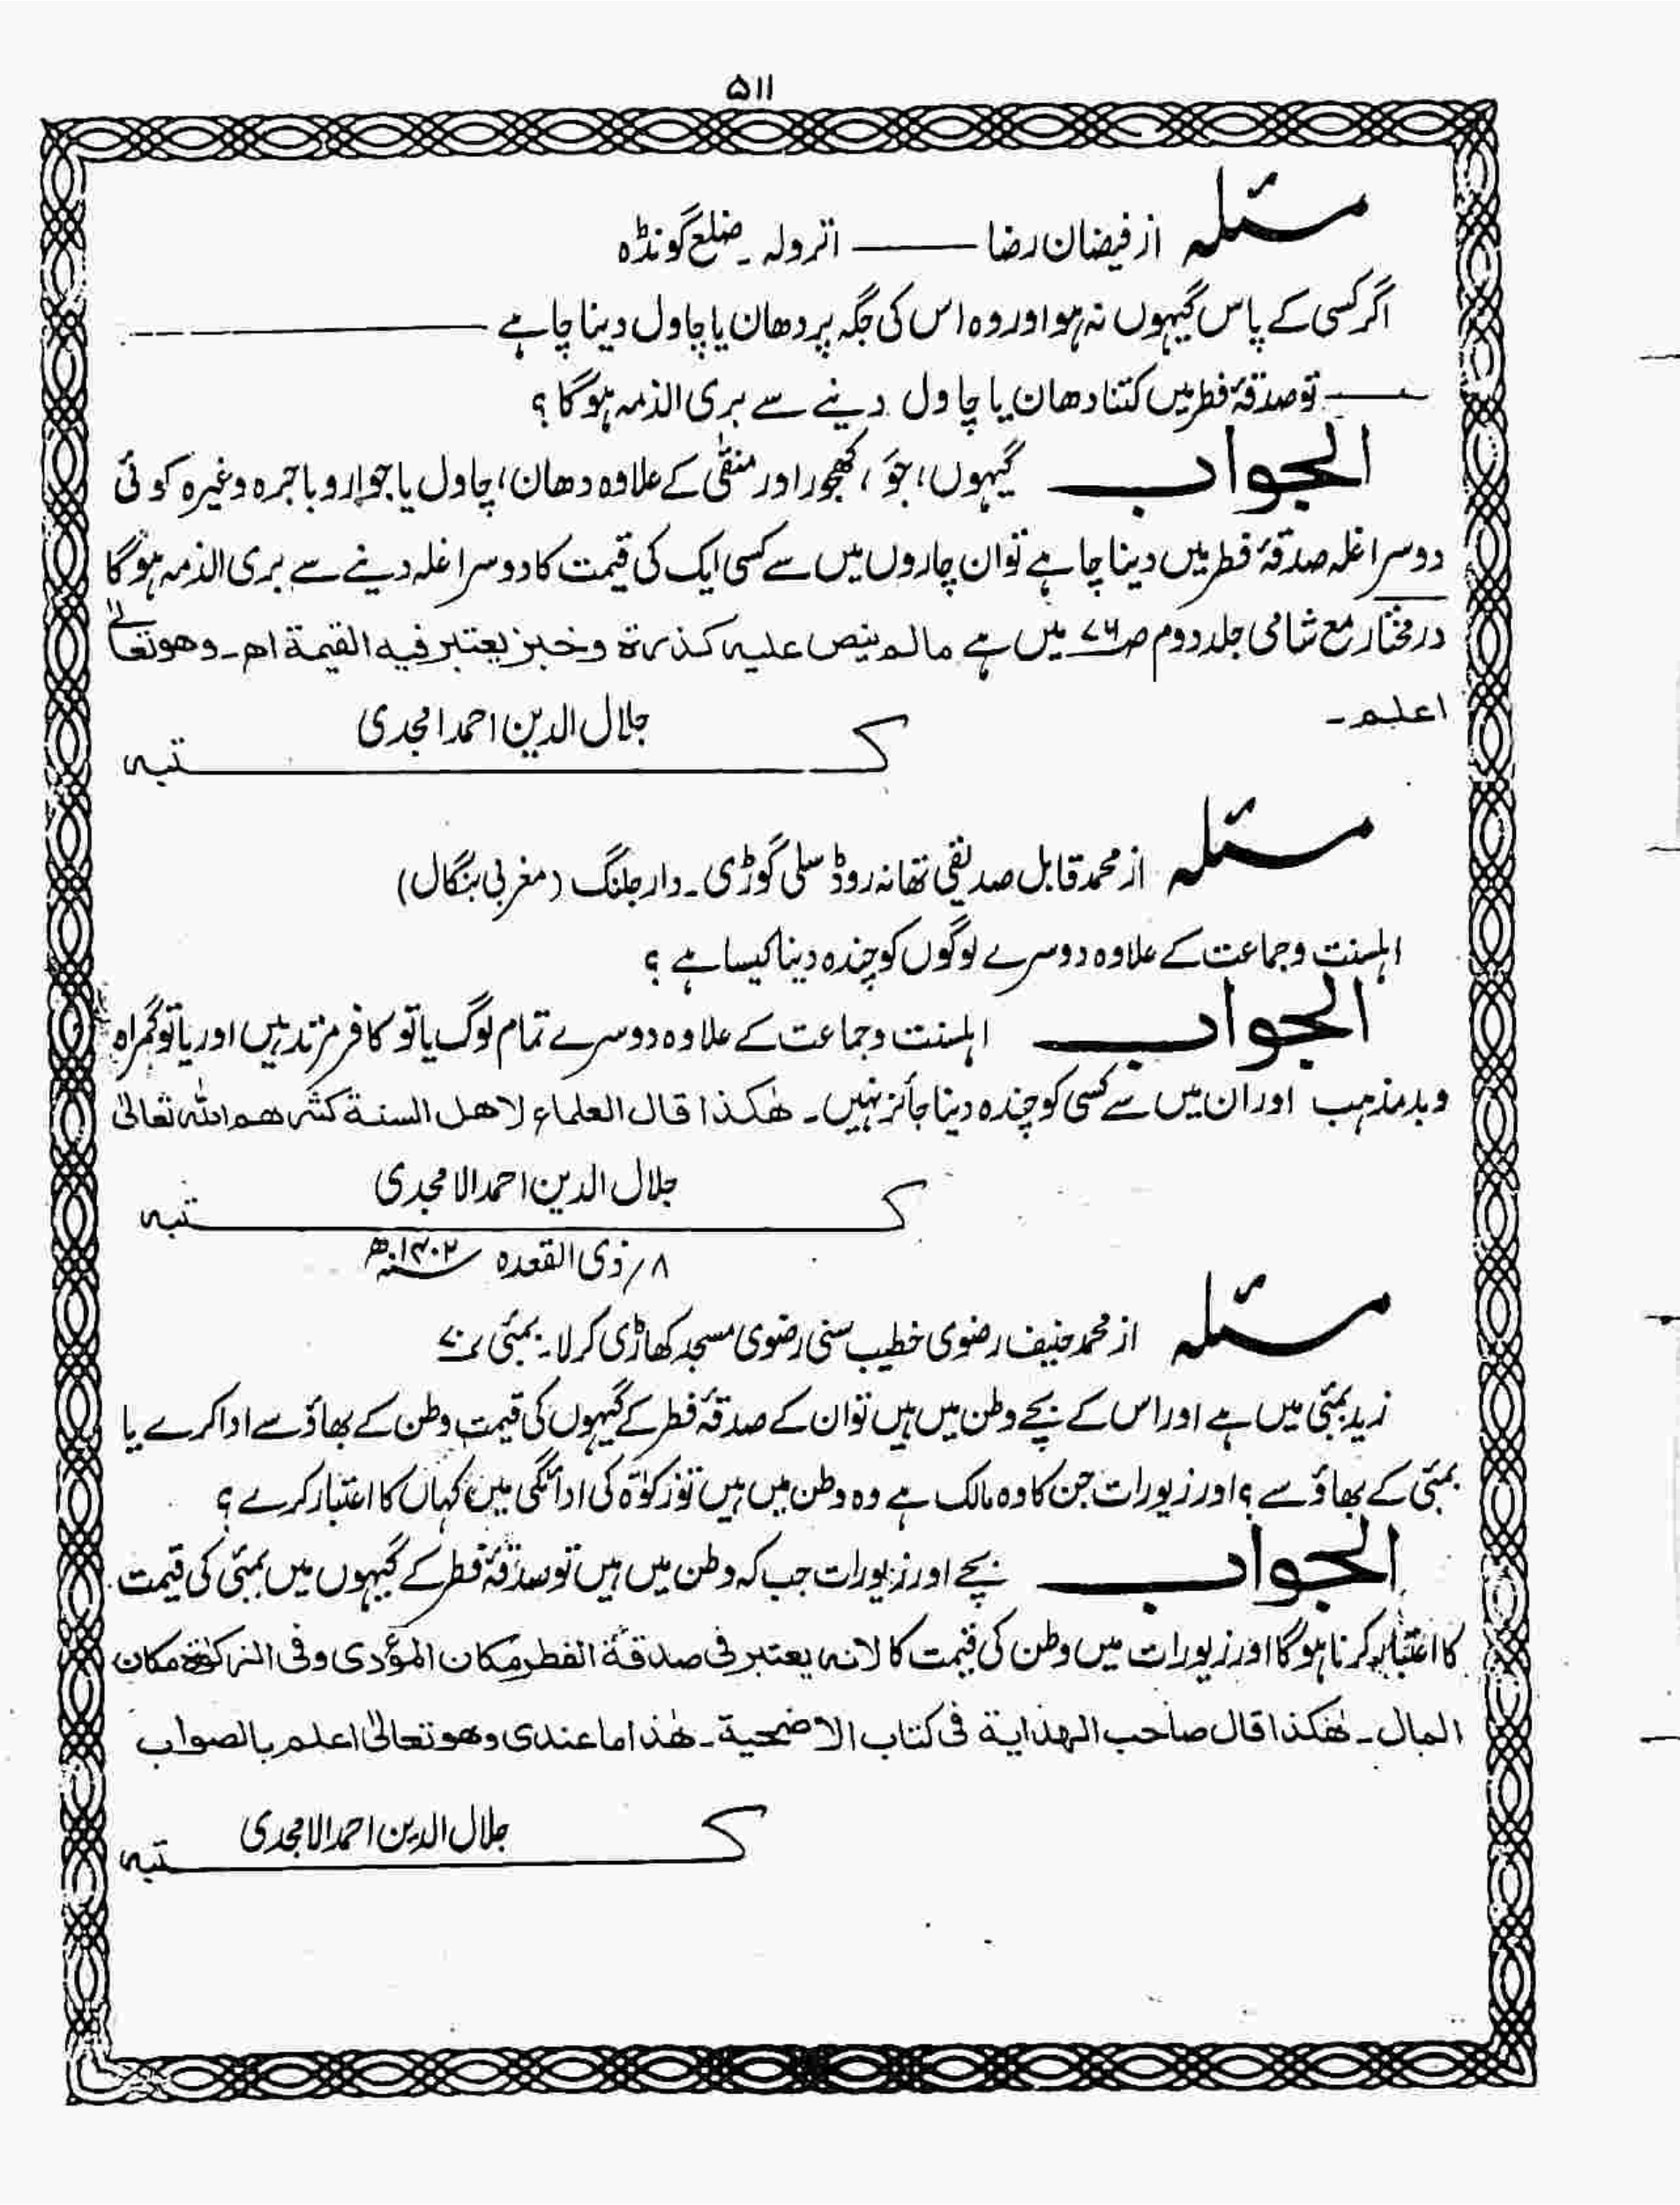 ۵۱۱
مسئلہ از فیضان رضا ــــــ اترولہ ۔ ضلع گونڈہ
اگر کسی کے پاس گیہوں نہ ہو اور وہ اس کی جگہ پر دھان یا چاول دینا چاہے ــــــ
ــــــ تو صدقۂ فطر میں کتنا دھان یا چاول دینے سے بری الذمہ ہوگا ؟
الجواب گیہوں، جَو ، کھجور اور منقّٰی کے علاوہ دھان، چاول یا جوار و باجرہ وغیرہ کوئی
دوسرا غلہ صدقۂ فطر میں دینا چاہے تو ان چاروں میں سے کسی ایک کی قیمت کا دوسرا غلہ دینے سے بری الذمہ ہوگا
درمختار مع شامی جلد دوم ص۷۶ میں ہے مالم ینص علیہ کذرۃ وخبز یعتبر فیہ القیمۃ اھ۔ وھو تعالیٰ
اعلم ۔
جلال الدین احمد امجدی
کتبہ
مسئلہ از محمد قابل صدیقی تھانہ روڈ سلی گوڑی ۔ دارجلنگ (مغربی بنگال)
اہلسنت وجماعت کے علاوہ دوسرے لوگوں کو چندہ دینا کیسا ہے ؟
الجواب اہلسنت وجماعت کے علاوہ دوسرے تمام لوگ یا تو کافر مرتد ہیں اور یا تو گمراہ
وبدمذہب اور ان میں سے کسی کو چندہ دینا جائز نہیں ۔ ھٰکذا قال العلماء لاھل السنۃ کثرھم اللہ تعالیٰ
جلال الدین احمد الامجدی
کتبہ
۸؍ ذی القعدہ ۱۴۰۲ھ
مسئلہ از محمد حنیف رضوی خطیب سنی رضوی مسجد کھاڑی کرلا ۔ بمبئی ۷۰
زید بمبئی میں ہے اور اس کے بچے وطن میں ہیں تو ان کے صدقۂ فطر کے گیہوں کی قیمت وطن کے بھاؤ سے ادا کرے یا
بمبئی کے بھاؤ سے ؟ اور زیورات جن کا وہ مالک ہے وہ وطن میں ہیں تو زکوٰۃ کی ادائگی میں کہاں کا اعتبار کرے ؟
الجواب بچے اور زیورات جب کہ وطن میں ہیں تو صدقۂ فطر کے گیہوں میں بمبئی کی قیمت
کا اعتبار کرنا ہوگا اور زیورات میں وطن کی قیمت کا لانہ یعتبر فی صدقۃ الفطر مکان المؤدی وفی الزکوٰۃ مکان
المال ۔ ھٰکذا قال صاحب الھدایۃ فی کتاب الاضحیۃ ۔ ھٰذا ما عندی وھو تعالیٰ اعلم بالصواب
جلال الدین احمد الامجدی
کتبہ